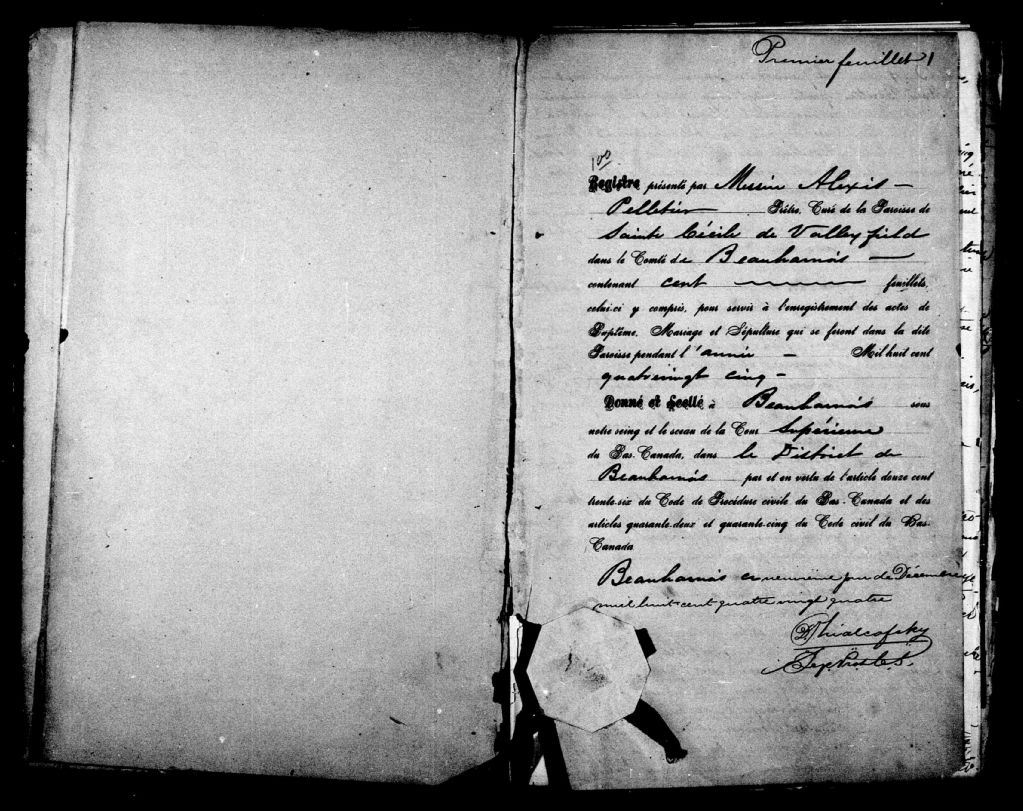 Premier feuillet 1
100
Registre présenté par Messire Alexis —
Pelletier Prêtre, Curé de la Paroisse de
Sainte Cécile de Valleyfield
dans le Comté de Beauharnois —
contenant cent feuillets,
celui-ci y compris, pour servir à l'enregistrement des actes de
Baptême, Mariage et Sépulture qui se feront dans la dite
Paroisse pendant l'année — Mil huit cent
quatrevingt cinq —
Donné et Scellé à Beauharnois sous
notre seing et le sceau de la Cour Supérieure
du Bas-Canada, dans le District de
Beauharnois par et en vertu de l'article douze cent
trente-six du Code de Procédure civile du Bas-Canada et des
articles quarante-deux et quarante-cinq du Code civil du Bas-
Canada
Beauharnois ce neuvième jour de Décembre
mil huit cent quatre vingt quatre